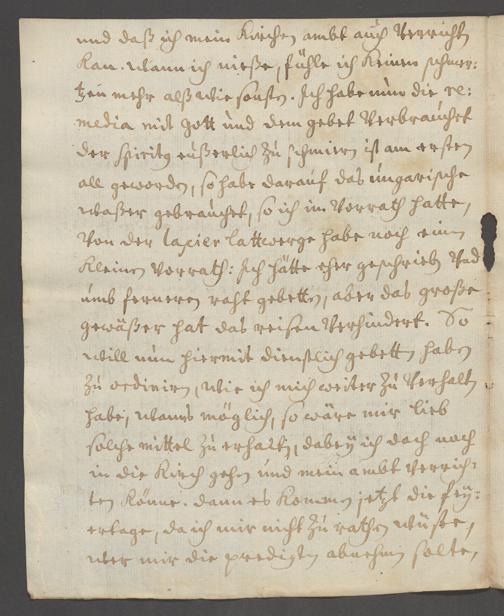 und daß ich mein Kirchen ambt auch verricht
kan. wann ich nieße, fühle ich keinen schmer:
tzen mehr alß wie sonsten. Ich habe nun die re:
media mit Gott und dem gebet verbrauchet
der spirit9 eußerlich zu schmiren ist am ersten
all geworden, so habe darauf das ungarische
waßer gebrauchet, so ich im Vorrath hatte,
von der laxier lattwerge habe noch einen
kleinen vorrath: Ich hätte eher geschrieben und
umb ferneren raht gebetten, aber das große
gewäßer hat das reisen verhindert. So
will nun hiermit dienstlich gebetten haben
zu ordiniren, wie ich mich weiter zu verhalten
habe, wanns möglich, so wäre mir lieb
solche mittel zu erhalten, dabey ich doch noch
in die Kirch gehen und mein ambt verrich-
ten könne. dann es kommen jetzt die fey:
ertage, da ich mir nicht zu rathen wüste,
wer mir die predigten abnehmen solte,